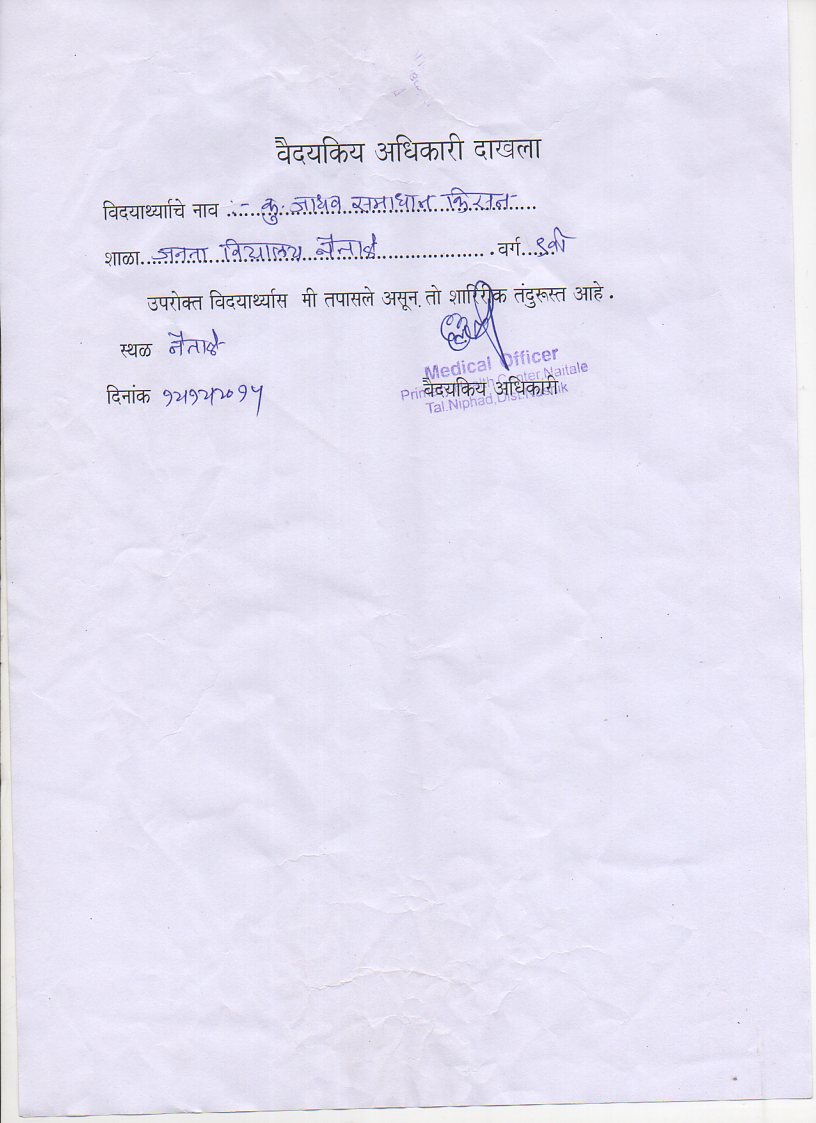 वैदयकिय अधिकारी दाखला
विदयार्थ्याचे नाव :- कु. जाधव समाधान किसन
शाळा जनता विद्यालय नैताळे वर्ग ९वी
उपरोक्त विदयार्थ्यास मी तपासले असून, तो शारिरीक तंदुरूस्त आहे .
स्थळ नैताळे
Medical Officer
Primary Health Center, Naitale
Tal. Niphad, Dist. Nashik
दिनांक
वैदयकिय अधिकारी